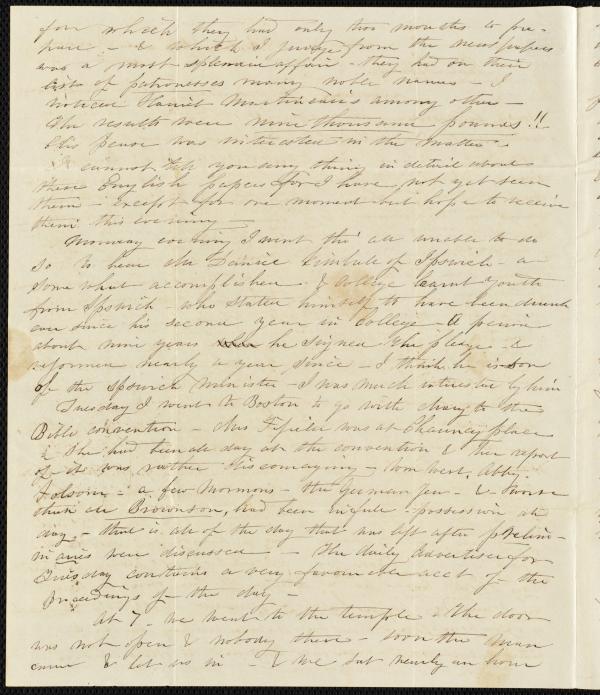 for which they had only two months to pre-
pare - & which I judge from the newspapers
was a most splendid affair - they had on their
lists of patronesses many noble names - I
noticed Harriet Martineau's among others -
the results were nine thousand pounds!!
this person was interested in the matter -
I cannot tell you any thing in detail about
these English papers for I have not yet seen
them - except for one moment but hope to receive
them this evening -
Monday evening I went tho' all unable to do
so to hear Mr Daniel Kimball of Ipswich - a
some what accomplished & college learnt youth
from Ipswich - who stated himself to have been drunk
ever since his second year in college - a period
about nine years he signed the pledge &
reformed nearly a year since - I think he is son
of the Ipswich minister - I was much interested by him
Tuesday I went to Boston to go with the
Bible convention - Mrs was at Chauncy place
& she had been all day at the convention & her report
of it was rather discouraging - Abby
Folsom - a few Mormons - the German Jew - & worse
than all Brownson, had been in full possession all
day - that is all of the day that was left after prelim-
inaries were discussed - The daily Advertiser for
Thursday contains a very favourable acct of the
Proceedings of the day -
At 7 - we went to the temple - the door
was not open & nobody there - soon the man
came & let us in - & we sat nearly an hour